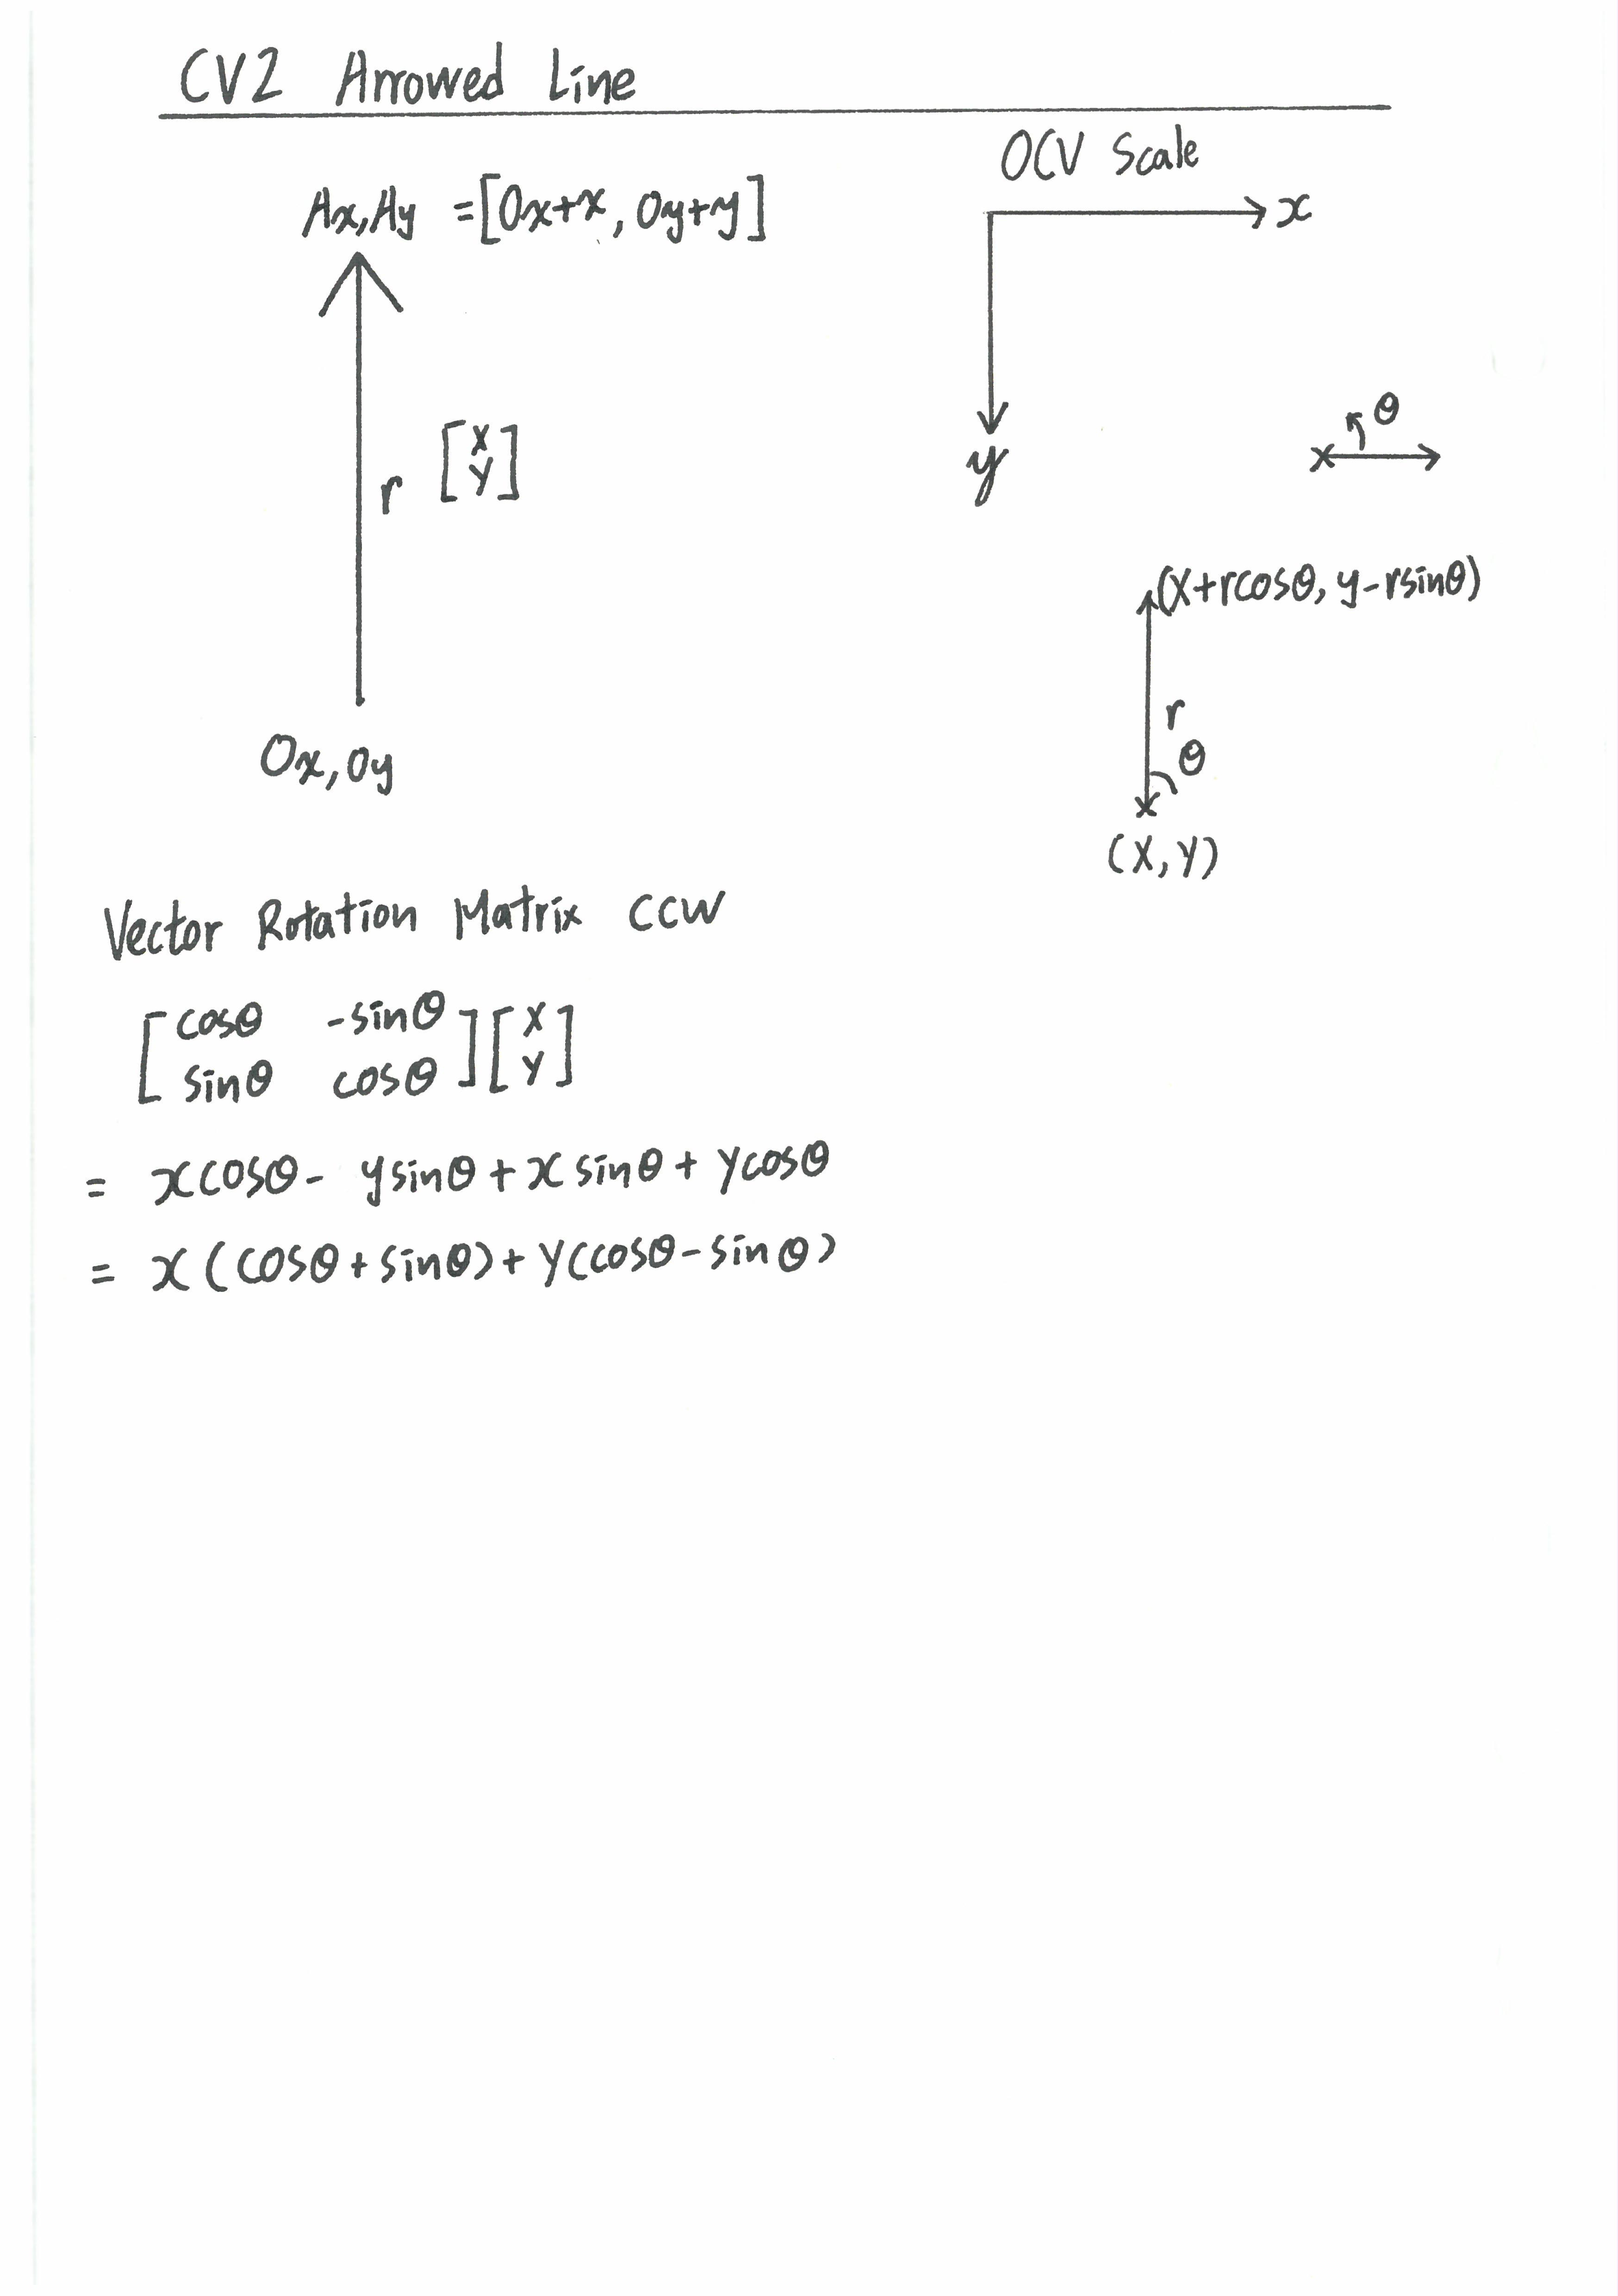 CV2 Arrowed Line
OCV Scale
Ax, Ay = [Ox+x, Oy+y]
x
y
r [x
y]
θ
x
(x+rcosθ, y-rsinθ)
r
θ
x
(x, y)
Ox, Oy
Vector Rotation Matrix CCW
[cosθ -sinθ
sinθ cosθ] [x
y]
= xcosθ - ysinθ + xsinθ + ycosθ
= x(cosθ+sinθ) + y(cosθ-sinθ)